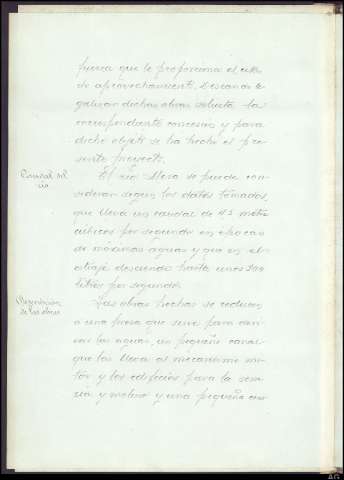 fuerza que le proporciona el citado
aprovechamiento. Deseando le
galizar dichas obras solicita la
correspondiente concesión y para
dicho objeto se ha hecho el pre
sente proyecto.
Caudal del
río
El río Mera se puede con
siderar según los datos tomados,
que lleva un caudal de 4'5 metros
cúbicos por segundo en época
de máximas aguas y que en el
estiaje desciende hasta unos 300
litros por segundo.
Descripción
de las obras
Las obras hechas se reducen
a una presa que sirve para
las aguas, un pequeño canal
que las lleva al mecanismo mo
tor y los edificios para la serre
ría y molino y una pequeña